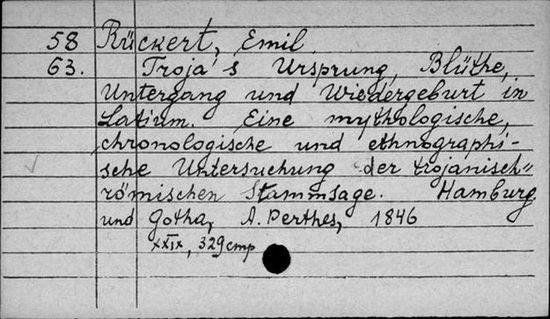 58 Rückert, Emil.
63. Troja's Ursprung, Blüthe,
Untergang und Wiedergeburt in
Latium. Eine mythologische,
chronologische und ethnographi-
sche Untersuchung der trojanisch=
römischen Stammsage. Hamburg
und Gotha, A. Perthes, 1846
XXIX, 329cmp